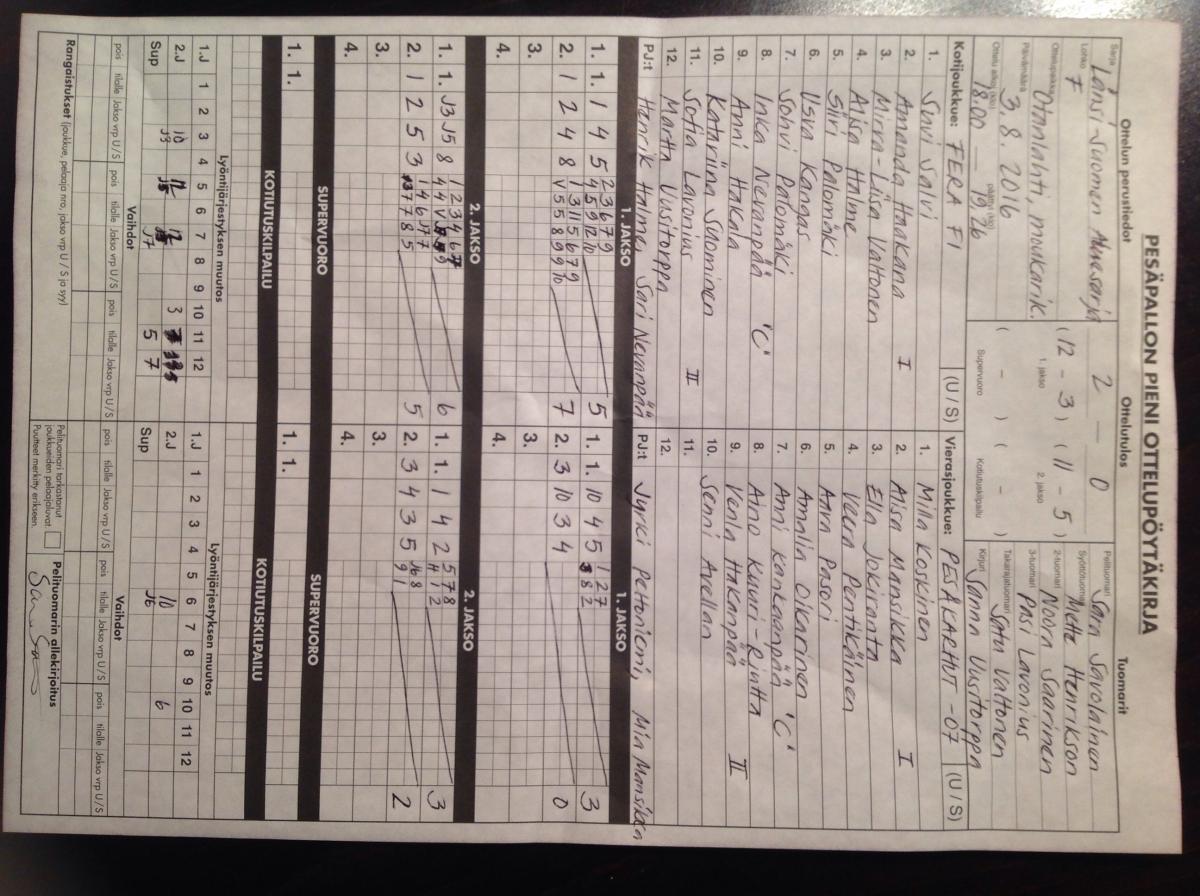 PESÄPALLON PIENI OTTELUPÖYTÄKIRJA
Ottelun perustiedot
Ottelutulos
Tuomarit
Sarja
Länsi-Suomen Aluesarja
Lohko
7
Ottelupaikka
Otanlahti, moukarik.
Päivämäärä
3.8.2016
Ottelu alkoi (klo)
18.00 —
päättyi (klo)
19.26
2 — 0
( 12 - 3 ) ( 11 - 5 )
1. jakso 2. jakso
( - ) ( - )
Supervuoro Kotiutuskilpailu
Pelituomari Sara Savolainen
Syöttötuomari Mette Henrikson
2-tuomari Noora Saarinen
3-tuomari Pasi Lavonius
Takarajatuomari Satu Valtonen
Kirjuri Sanna Uusitorppa
Kotijoukkue: FERA F1 (U / S)
1. Sinvi Salvi
2. Amanda Haakana I
3. Mirva-Liisa Valtonen
4. Alisa Halme
5. Siiri Palomäki
6. Usva Kangas
7. Sohvi Palomäki
8. Inka Nevanpää 'C'
9. Anni Hakala
10. Katariina Suominen
11. Sofia Lavonius II
12. Martta Uusitorppa
PJ:t Henrik Halme, Sari Nevanpää
Vierasjoukkue: PESÄKARHUT -07 (U / S)
1. Milla Koskinen
2. Alisa Mansikka I
3. Ella Jokiranta
4. Veera Pentikäinen
5. Aara Pasori
6. Amalia Oikarinen
7. Anni Kankaanpää 'C'
8. Aino Kuuri-Riutta
9. Venla Hakanpää II
10. Senni Avellan
11.
12.
PJ:t Jyrki Peltoniemi, Mia Mansikka
1. JAKSO 1. JAKSO
1. 1. 1 4 5 2 3 6 7 9 5
4 5 9 12 10
2. 1 2 4 8 1 3 11 5 6 7 9 7
V 5 5 8 9 9 10
3.
4.
1. 1. 10 4 5 1 2 7 3
3 8 2
2. 3 10 3 4 0
3.
4.
2. JAKSO 2. JAKSO
1. 1. J3 J5 8 1 2 3 4 6 6
2. 1 2 5 3 1 4 6 J7 5
3.
4.
1. 1. 1 4 2 5 7 8 3
4 1 2
2. 3 4 3 5 J6 8 2
9 1
3.
4.
SUPERVUORO SUPERVUORO
1. 1.
1. 1.
KOTIUTUSKILPAILU KOTIUTUSKILPAILU
Lyöntijärjestyksen muutos
1 2 3 4 5 6 7 8 9 10 11 12
1.J
2.J 10 3
J3 J7 5 7
Sup
Lyöntijärjestyksen muutos
1 2 3 4 5 6 7 8 9 10 11 12
1.J
2.J 10 6
J6
Sup
Vaihdot
pois tilalle Jakso vrp U / S pois tilalle Jakso vrp U / S pois tilalle Jakso vrp U / S
Vaihdot
pois tilalle Jakso vrp U / S pois tilalle Jakso vrp U / S pois tilalle Jakso vrp U / S
Rangaistukset (joukkue, pelaaja nro, jakso vrp U / S ja syy)
Pelituomari tarkastanut
joukkueiden pelaajaluvat
Puutteet merkitty erikseen.
Pelituomarin allekirjoitus